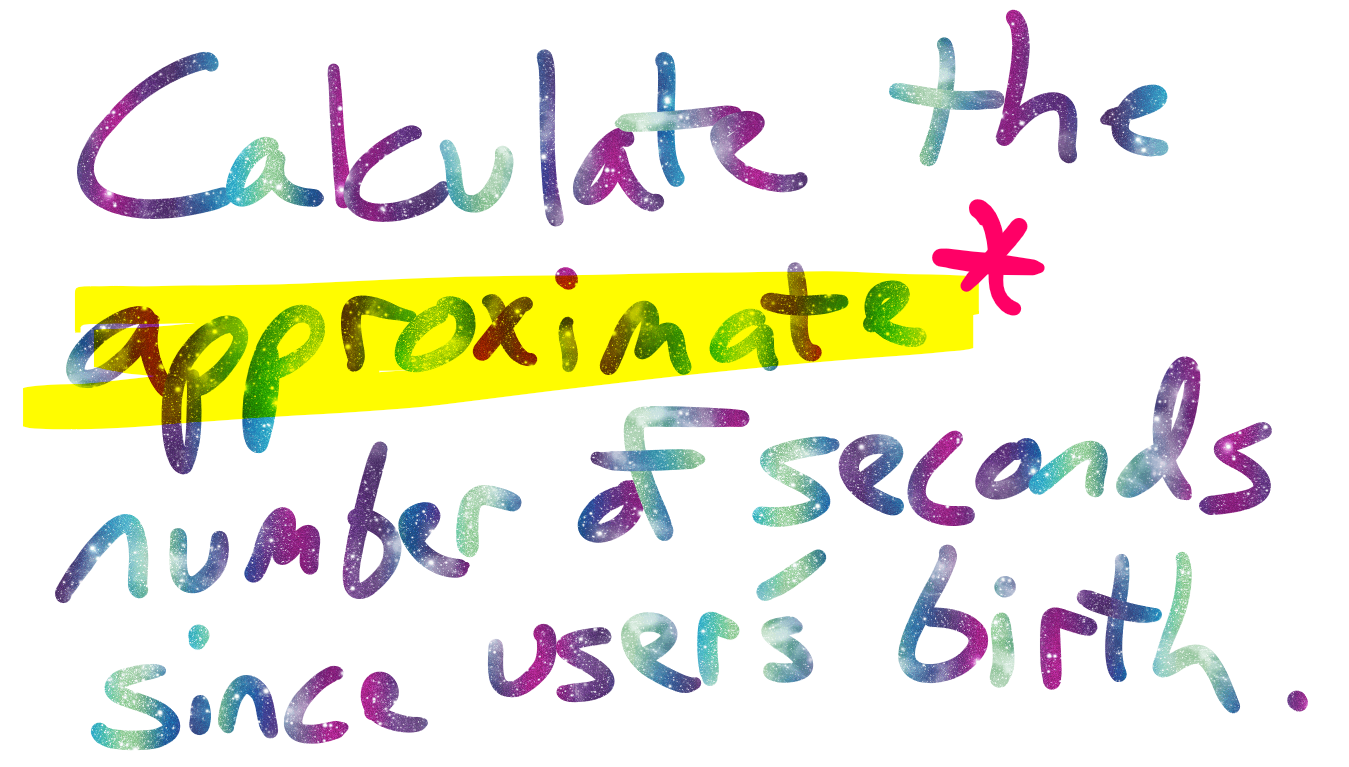 Calculate the
approximate*
number of seconds
since user's birth.